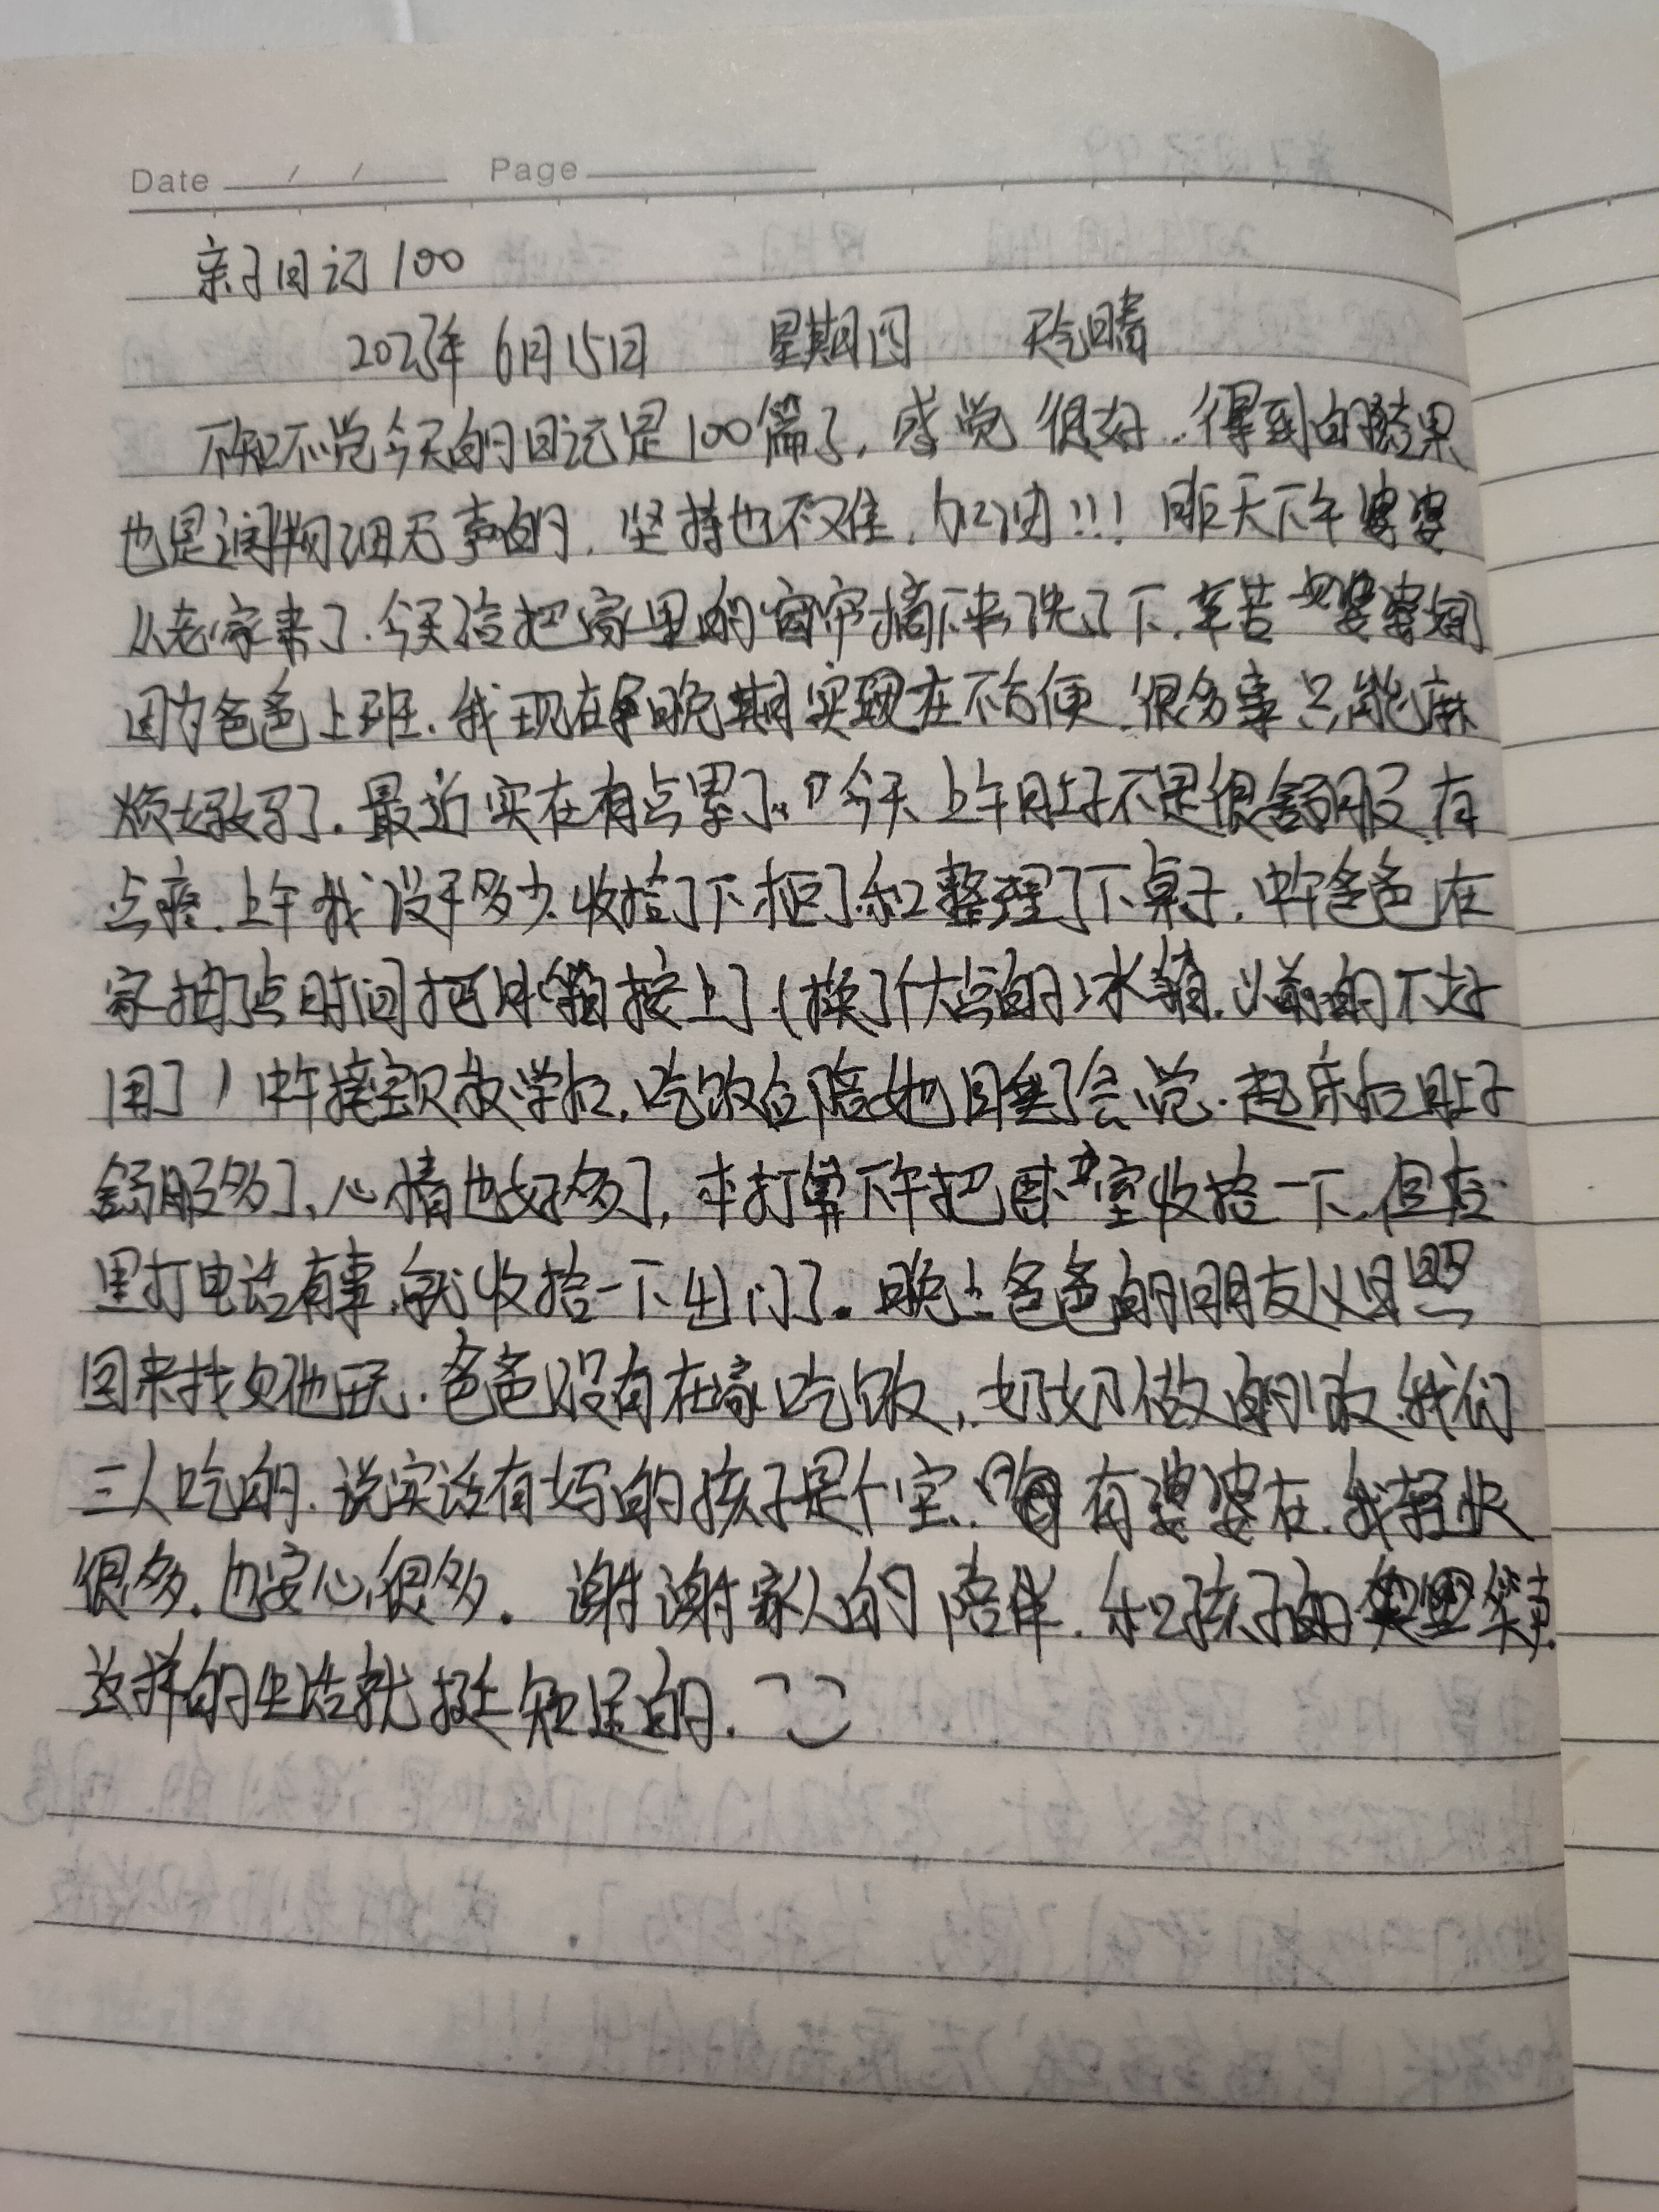 Date / / Page
亲子日记100
2023年6月15日 星期四 天气晴
不知不觉今天的日记是100篇了,感觉很好.得到的结果
也是润物细无声的.坚持也不难,加油!!!昨天下午婆婆
从老家来了.今天给把家里的窗帘摘下来洗了下.辛苦婆婆
因为爸爸上班.我现在晚期实在不方便.很多事只能麻
烦好了.最近实在有点累了。今天上午肚子不是很舒服有
点疼.上午我没干多少.收拾了下柜子和整理了下桌子.中午爸爸在
家抽了点时间把冰箱接上了(换了个大点的冰箱.以前的不好
用了)中午接宝贝放学后,吃饭后陪她睡了会觉.起床后肚子
舒服多了,心情也好多了,本打算下午把卧室收拾一下.但店
里打电话有事.我收拾一下出门了。晚上爸爸的朋友从日照
回来找他玩.爸爸没有在家吃饭,奶奶做的饭.我们
三人吃的.说实话有妈的孩子是个宝.有婆婆在.我轻快
很多.也安心很多.谢谢家人的陪伴.和孩子的笑声.
这样的生活就挺知足的.